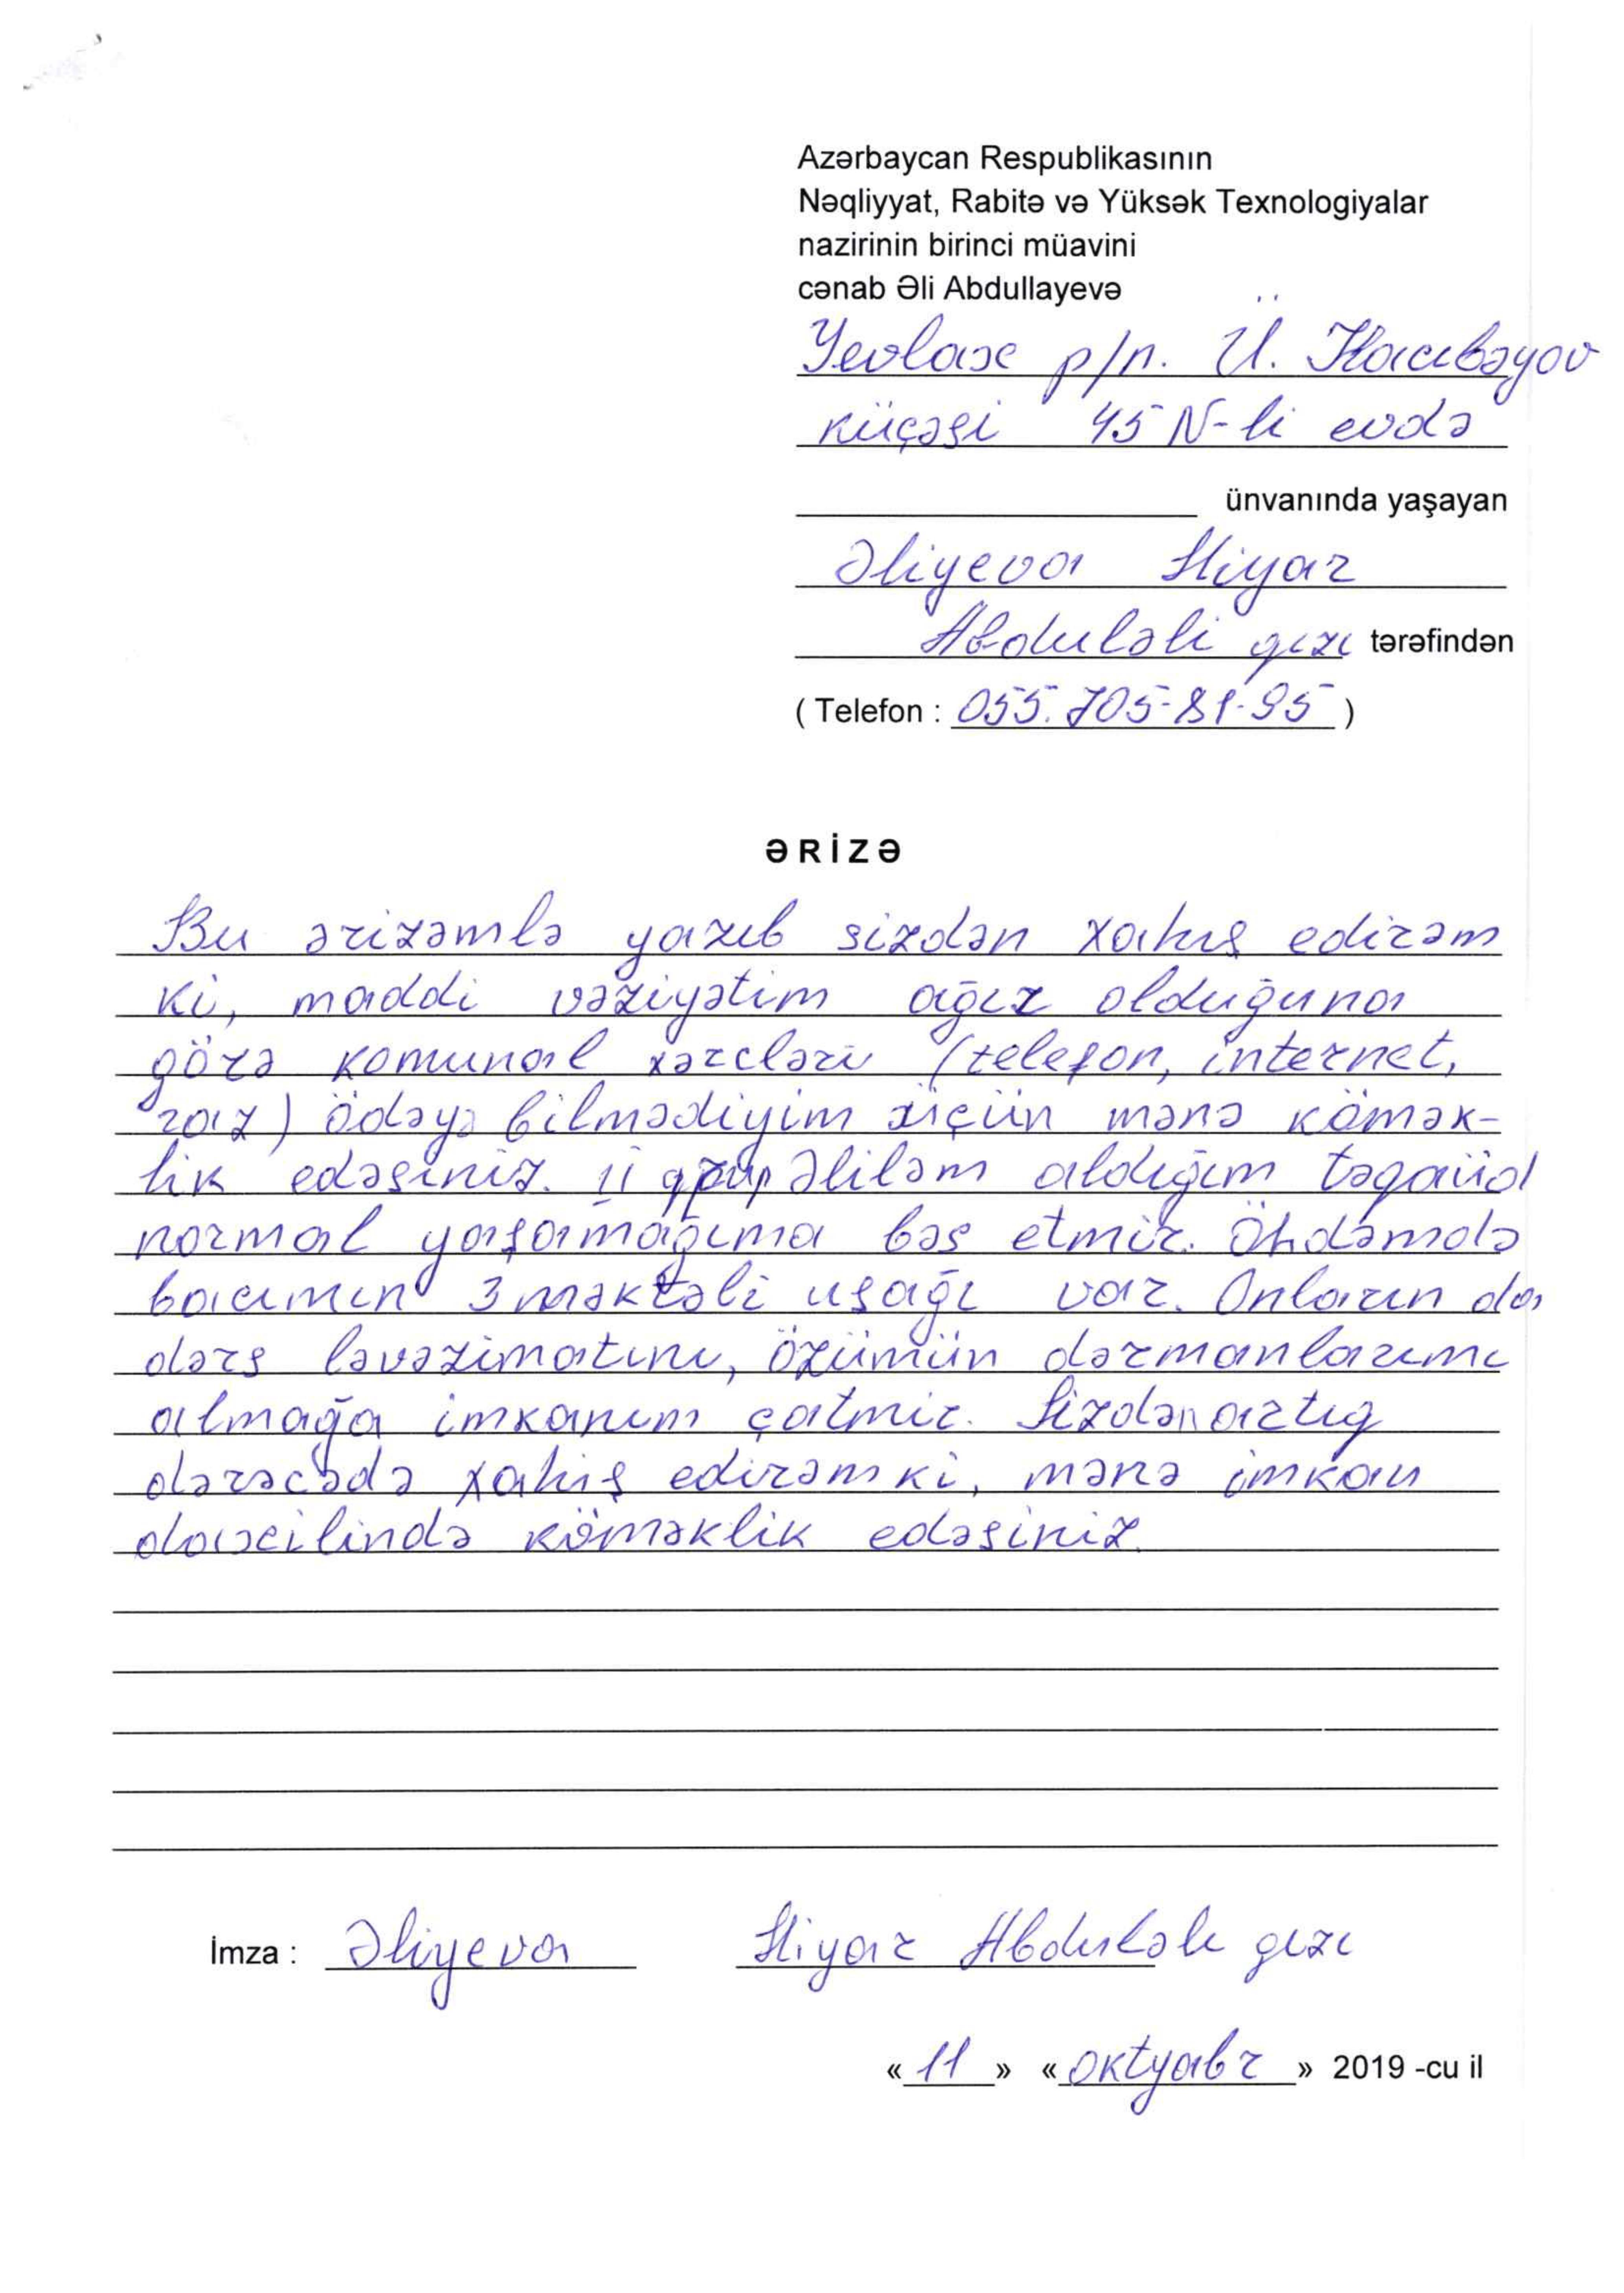 Azərbaycan Respublikasının
Nəqliyyat, Rabitə və Yüksək Texnologiyalar
nazirinin birinci müavini
cənab Əli Abdullayevə
Yevlax p/n. Ü. Hacıbəyov
küçəsi 45 N-li evdə
ünvanında yaşayan
Əliyeva Hiyar
Abduləli qızı tərəfindən
( Telefon : 055. 705-81-95 )
ƏRİZƏ
Bu ərizəmlə yazıb sizdən xahış edirəm
ki, maddi vəziyətim ağır olduğuna
görə komunal xərcləri (telefon, internet,
qaz) ödəyə bilmədiyim üçün mənə kömək-
lik edəsiniz. II qrup əliləm aldığım təqaüd
normal yaşamağıma bəs etmir. Öhdəmdə
bacımın 3 məktəli uşağı var. Onların da
dərs ləvəzimatını, özümün dərmanlarımı
almağa imkanım çatmir. Sizdən artıq
dərəcədə xahiş edirəm ki, mənə imkan
daxilində köməklik edəsiniz.
İmza : Əliyeva Hiyar Abduləli qızı
« 11 » « oktyabr » 2019 -cu il